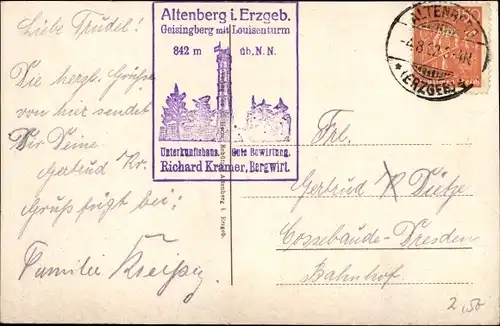 Altenberg i. Erzgeb.
Geisingberg mit Louisenturm
842 m üb. N.N.
Unterkunftshaus. Gute Bewirtung.
Richard Kramer, Bergwirt.
Liebe Trudel!
Die herzl. Grüße
von hier sendet
Dir Deine
Gertrud Kr.
Gruß fügt bei:
Familie
ALTENBERG
(ERZGEB.)
Altenberg i. Erzgeb.
Frl.
Gertrud Dietze
Cossebaude-Dresden
Bahnhof
2,50